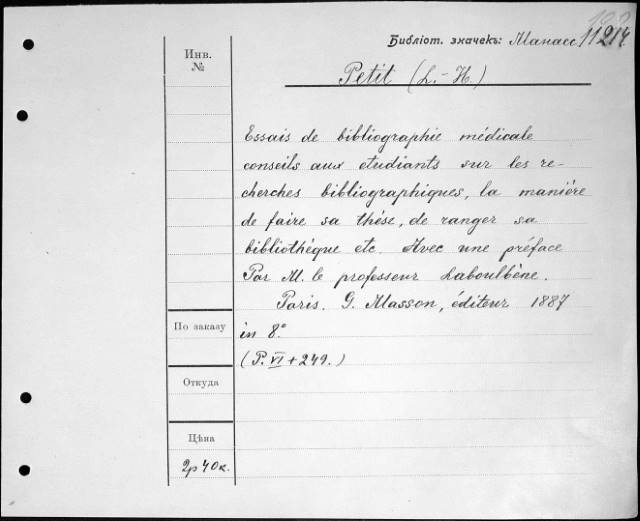 Библіот. значекъ: Манасс. 11214
Инв.
№
Petit (L.-H.)
Essais de bibliographie médicale
conseils aux etudiants sur les re-
cherches bibliographiques, la manière
de faire sa thèse, de ranger sa
bibliothèque etc. Avec une préface
Par M. le professeur Laboulbène.
Paris. G. Masson, éditeur 1887
По заказу
in 8º
(P. VI + 249.)
Откуда
Цѣна
2р 40к.